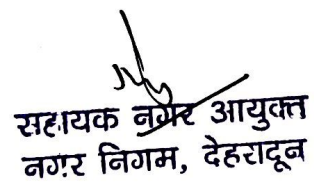 सहायक नगर आयुक्त
नगर निगम, देहरादून